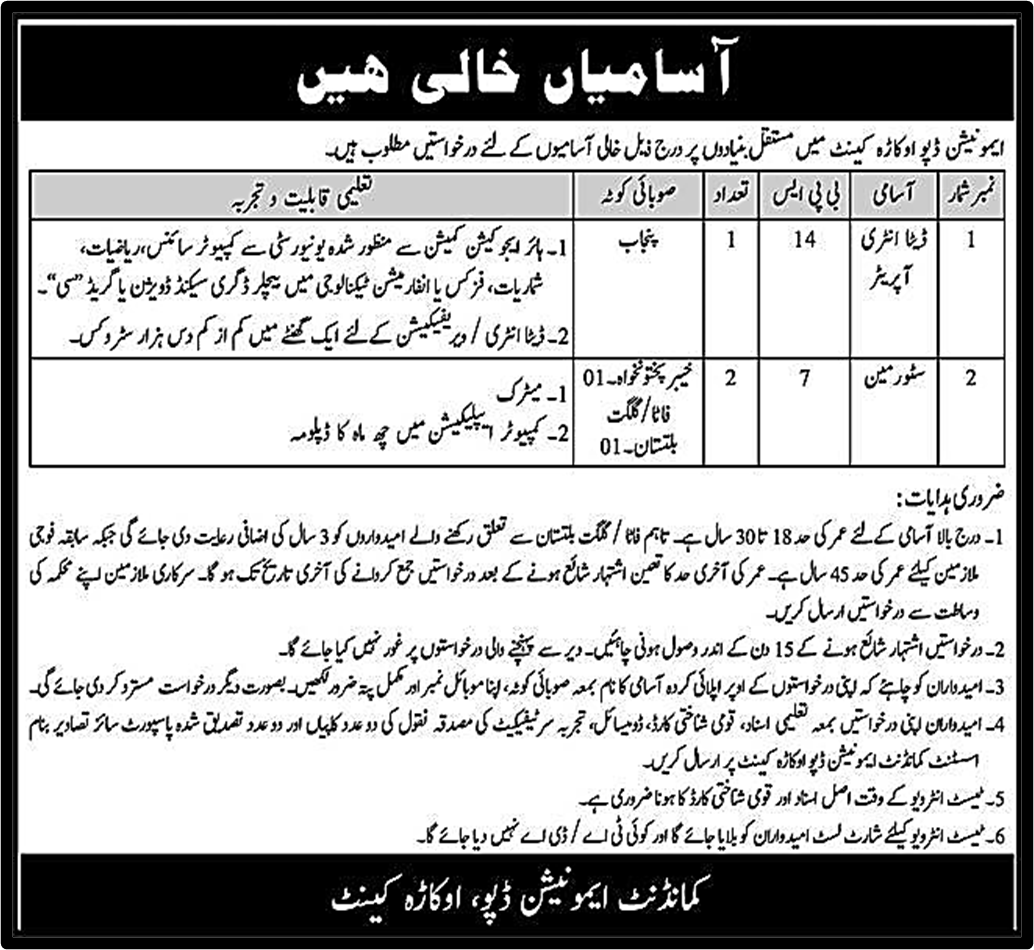 آسامیاں خالی ھیں
ایمونیشن ڈپو اوکاڑہ کینٹ میں مستقل بنیادوں پر درج ذیل خالی آسامیوں کے لئے درخواستیں مطلوب ہیں۔
نمبر شمار آسامی بی پی ایس تعداد صوبائی کوٹہ تعلیمی قابلیت و تجربہ
1 ڈیٹا انٹری آپریٹر 14 1 پنجاب
1۔ ہائر ایجوکیشن کمیشن سے منظور شدہ یونیورسٹی سے کمپیوٹر سائنس، ریاضیات،
شماریات، فزکس یا انفارمیشن ٹیکنالوجی میں بیچلر ڈگری سیکنڈ ڈویژن یا گریڈ “سی”۔
2۔ ڈیٹا انٹری / ویریفیکیشن کے لئے ایک گھنٹے میں کم از کم دس ہزار سٹروکس۔
2 سٹور مین 7 2 خیبر پختونخواہ۔01
فاٹا/گلگت
بلتستان۔01
1۔ میٹرک
2۔ کمپیوٹر ایپلیکیشن میں چھ ماہ کا ڈپلومہ
ضروری ہدایات:
1۔ درج بالا آسامی کے لئے عمر کی حد 18 تا 30 سال ہے۔ تاہم فاٹا / گلگت بلتستان سے تعلق رکھنے والے امیدواروں کو 3 سال کی اضافی رعایت دی جائے گی جبکہ سابقہ فوجی
ملازمین کیلئے عمر کی حد 45 سال ہے۔ عمر کی آخری حد کا تعین اشتہار شائع ہونے کے بعد درخواستیں جمع کروانے کی آخری تاریخ تک ہو گا۔ سرکاری ملازمین اپنے محکمہ کی
وساطت سے درخواستیں ارسال کریں۔
2۔ درخواستیں اشتہار شائع ہونے کے 15 دن کے اندر وصول ہونی چاہئیں۔ دیر سے پہنچنے والی درخواستوں پر غور نہیں کیا جائے گا۔
3۔ امیدواران کو چاہئے کہ اپنی درخواستوں کے اوپر اپلائی کردہ آسامی کا نام بمعہ صوبائی کوٹہ، اپنا موبائل نمبر اور مکمل پتہ ضرور لکھیں۔ بصورت دیگر درخواست مسترد کر دی جائے گی۔
4۔ امیدواران اپنی درخواستیں بمعہ تعلیمی اسناد، قومی شناختی کارڈ، ڈومیسائل، تجربہ سرٹیفیکیٹ کی مصدقہ نقول کی دو عدد کاپیاں اور دو عدد تصدیق شدہ پاسپورٹ سائز تصاویر بنام
اسسٹنٹ کمانڈنٹ ایمونیشن ڈپو اوکاڑہ کینٹ پر ارسال کریں۔
5۔ ٹیسٹ انٹرویو کے وقت اصل اسناد اور قومی شناختی کارڈ کا ہونا ضروری ہے۔
6۔ ٹیسٹ انٹرویو کیلئے شارٹ لسٹ امیدواران کو بلایا جائے گا اور کوئی ٹی اے / ڈی اے نہیں دیا جائے گا۔
کمانڈنٹ ایمونیشن ڈپو، اوکاڑہ کینٹ